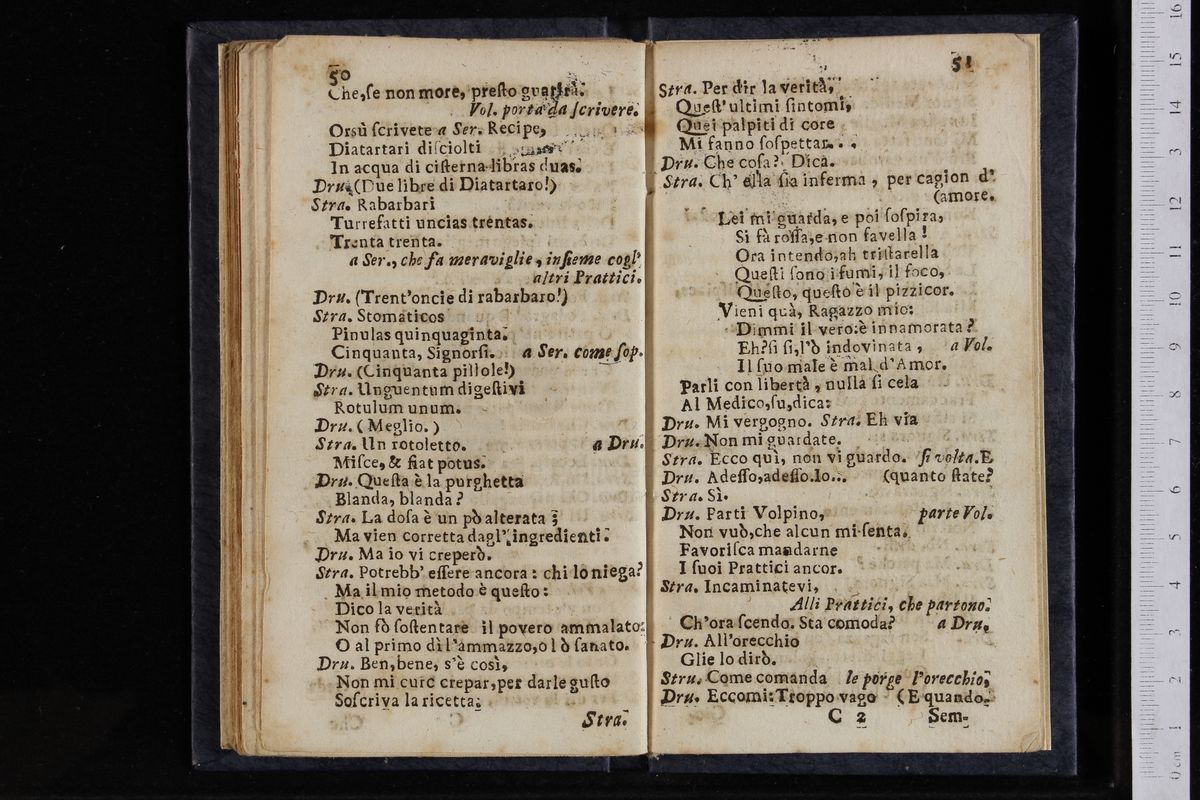 50
Che, ſe non more, preſto guarirà.
Vol. porta da ſcrivere.
Orsù ſcrivete a Ser. Recipe,
Diatartari diſciolti
In acqua di ciſterna libras duas.
Dru. (Due libre di Diatartaro!)
Stra. Rabarbari
Turrefatti uncias trentas.
Trenta trenta.
a Ser., che fa meraviglie, inſieme cogl'
altri Prattici.
Dru. (Trent'oncie di rabarbaro!)
Stra. Stomaticos
Pinulas quinquaginta.
Cinquanta, Signorſi. a Ser. come ſop.
Dru. (Cinquanta pillole!)
Stra. Unguentum digeſtivi
Rotulum unum.
Dru. (Meglio.)
Stra. Un rotoletto. a Dru.
Miſce, & fiat potus.
Dru. Queſta è la purghetta
Blanda, blanda?
Stra. La doſa è un pò alterata;
Ma vien corretta dagl'ingredienti.
Dru. Ma io vi creperò.
Stra. Potrebb' eſſere ancora: chi lo niega?
Ma il mio metodo è queſto:
Dico la verità
Non fò ſoſtentare il povero ammalato:
O al primo dì l'ammazzo, o l ò ſanato.
Dru. Ben, bene, s'è così,
Non mi curc crepar, per darle guſto
Soſcriva la ricetta.
Stra.
51
Stra. Per dir la verità,
Queſt'ultimi ſintomi,
Quei palpiti di core
Mi fanno ſoſpettar. . .
Dru. Che coſa? Dica.
Stra. Ch' ella ſia inferma, per cagion d'
(amore.
Lei mi guarda, e poi ſoſpira,
Si fà roſſa, e non favella!
Ora intendo, ah triſtarella
Queſti ſono i fumi, il foco,
Queſto, queſto è il pizzicor.
Vieni quà, Ragazzo mio:
Dimmi il vero: è innamorata?
Eh? ſi ſi, l'ò indovinata, a Vol.
Il ſuo male è mal d'Amor.
Parli con libertà, nulla ſi cela
Al Medico, ſu, dica:
Dru. Mi vergogno. Stra. Eh via
Dru. Non mi guardate.
Stra. Ecco quì, non vi guardo. ſi volta. E
Dru. Adeſſo, adeſſo. Io... (quanto ſtate?
Stra. Sì.
Dru. Parti Volpino, parte Vol.
Non vuò, che alcun mi ſenta.
Favoriſca mandarne
I ſuoi Prattici ancor.
Stra. Incaminatevi,
Alli Prattici, che partono.
Ch'ora ſcendo. Sta comoda? a Dru.
Dru. All'orecchio
Glie lo dirò.
Stra. Come comanda le porge l'orecchio,
Dru. Eccomi: Troppo vago (E quando.
C 2 Sem-